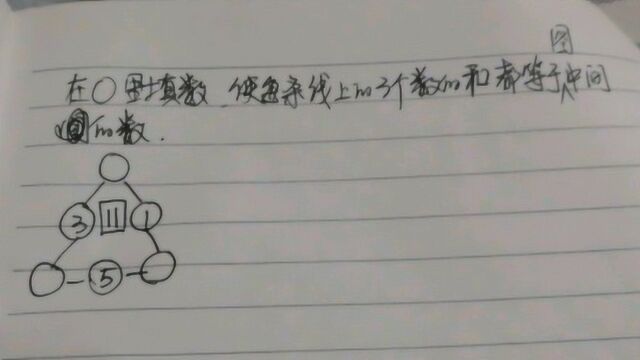 图
在○里填数.使每条线上的3个数的和都等于中间
的数.
3 11 1
5